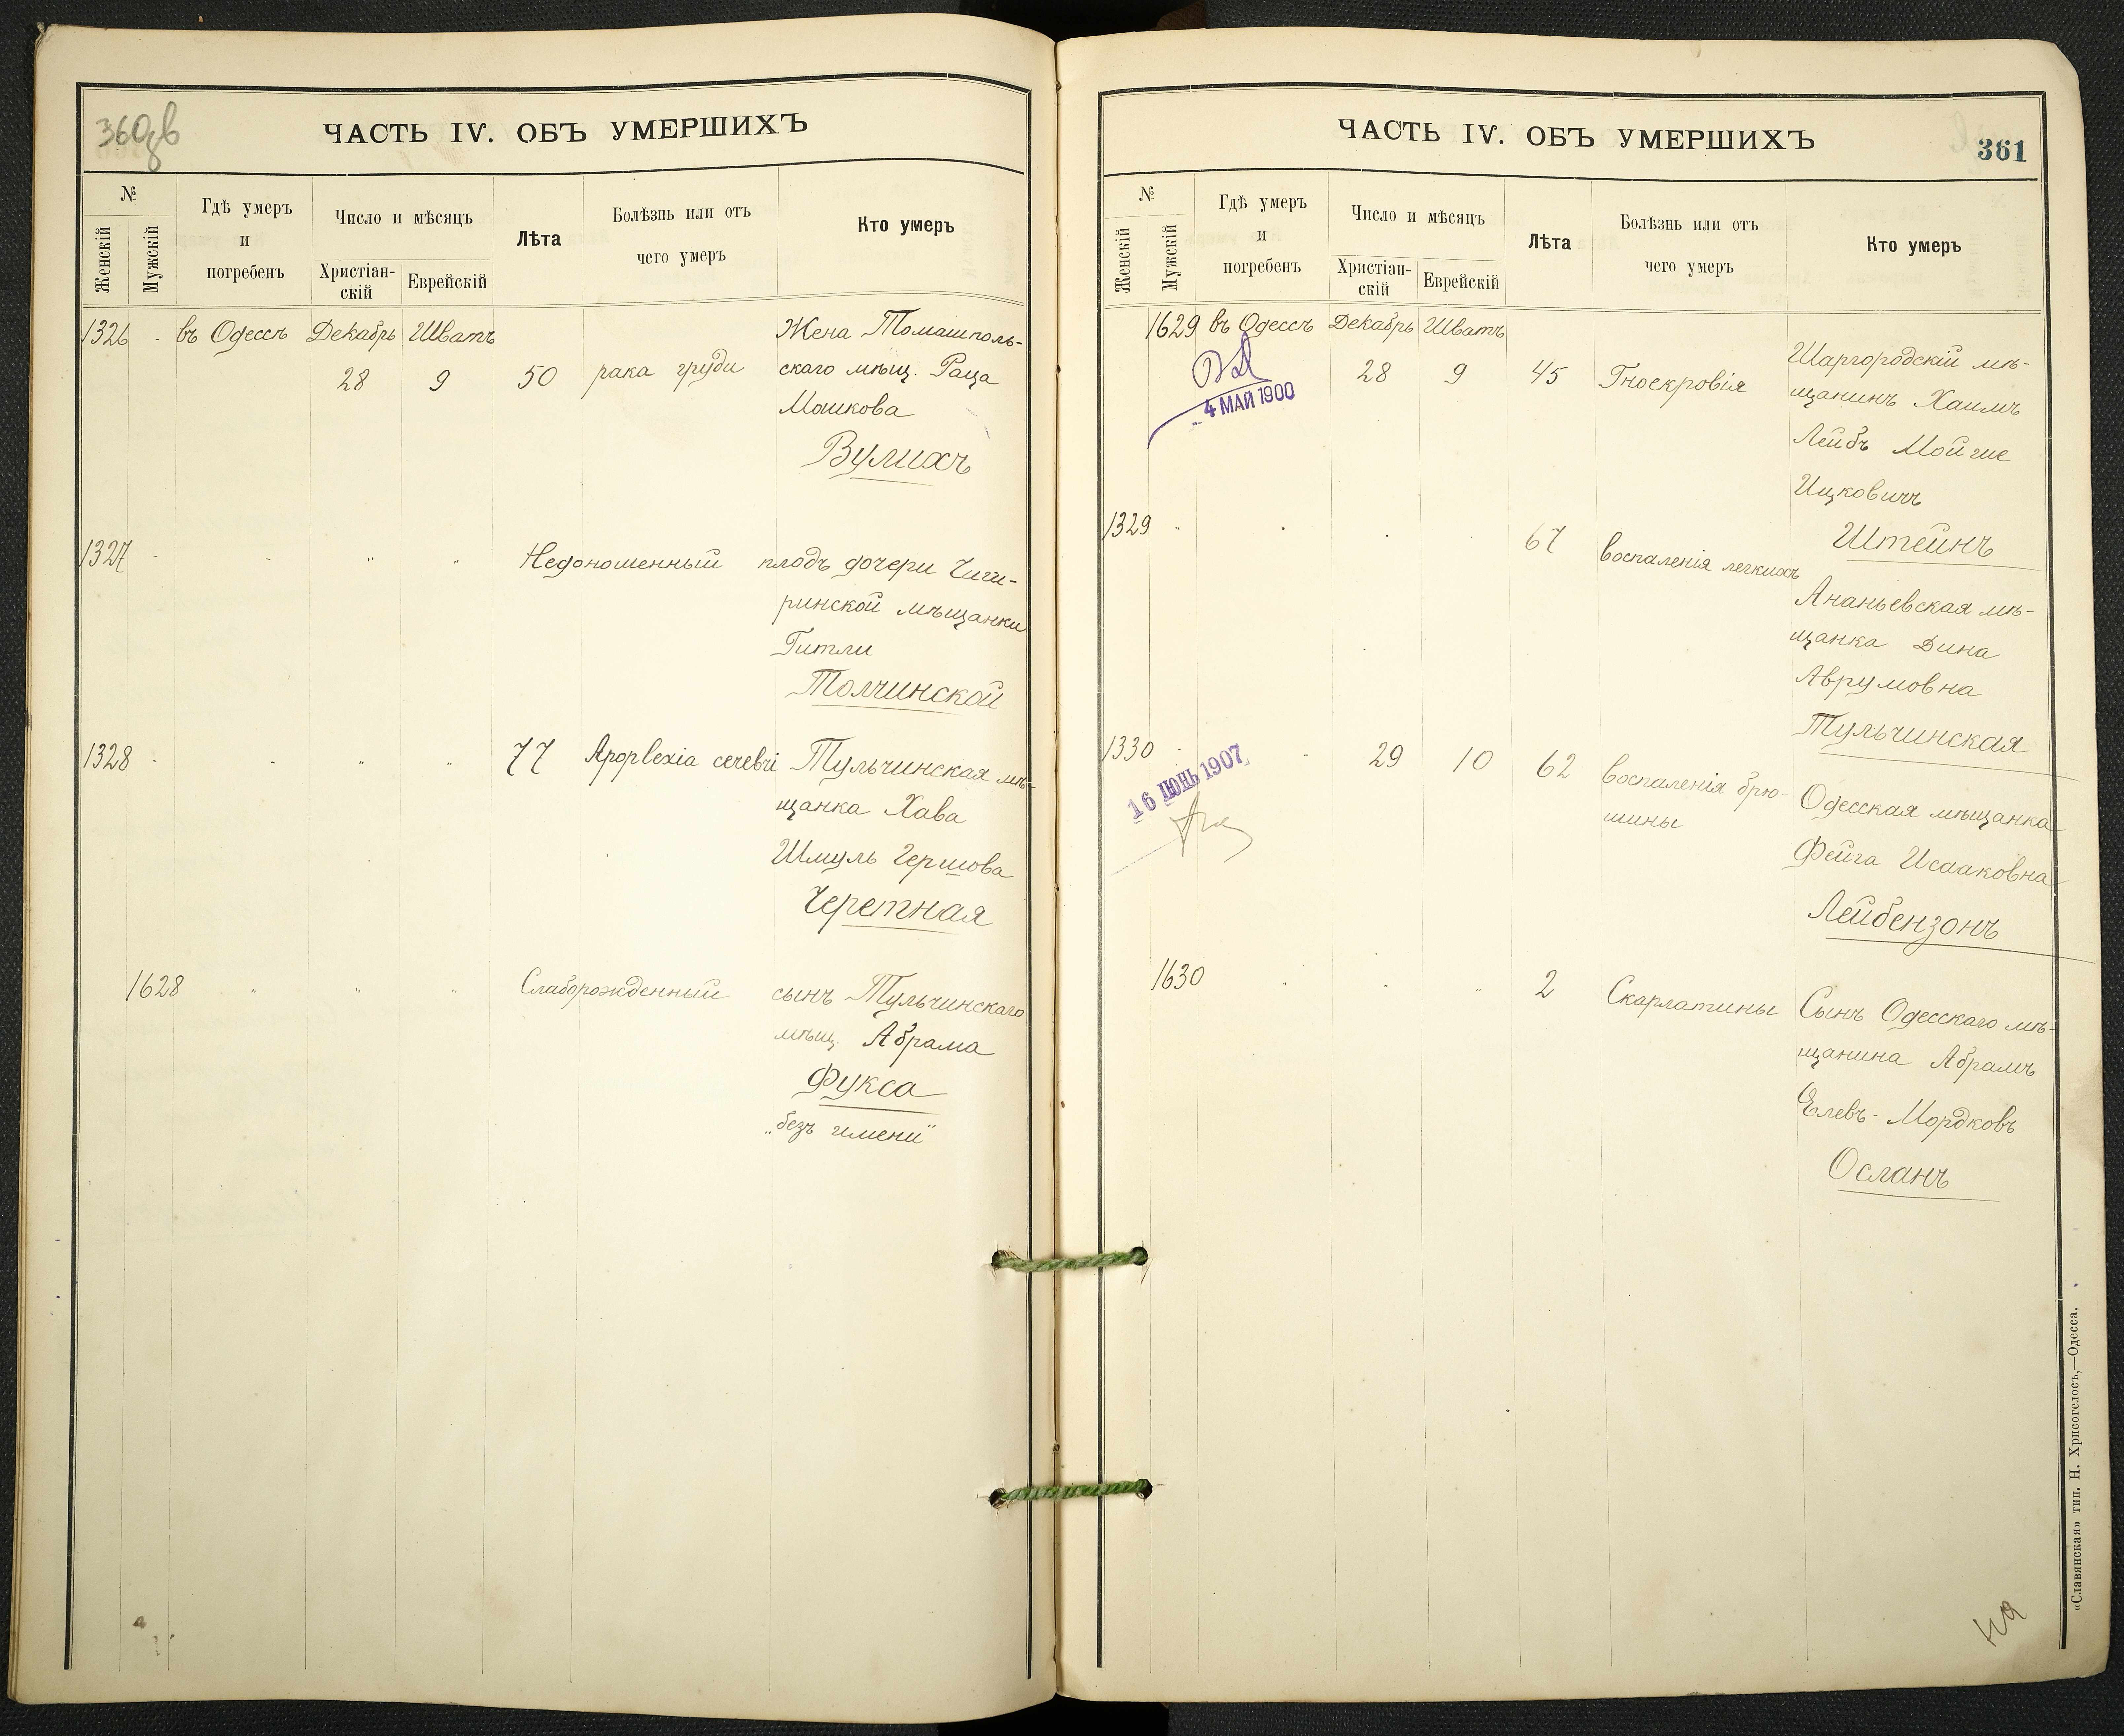 360 об
ЧАСТЬ IV. ОБЪ УМЕРШИХЪ
№
Женскій
Мужскій
Гдѣ умеръ
и
погребенъ
Число и мѣсяцъ
Христіан-
скій
Еврейскій
Лѣта
Болѣзнь или отъ
чего умеръ
Кто умеръ
1326 въ Одессѣ Декабрь Шватъ Жена Томашполь-
28 9 50 рака груди скаго мѣщ. Раца
Мошкова
Вулихъ
1327 " " Недоношенный плодъ дочери Чиги-
ринской мѣщанки
Гитли
Толчинской
1328 " " 77 Apoplexia cerebri Тульчинская мѣ-
щанка Хава
Шмуль Гершова
Черетная
1628 " " " Слаборожденный сынъ Тульчинскаго
мѣщ. Абрама
Фукса
"безъ имени"
ЧАСТЬ IV. ОБЪ УМЕРШИХЪ
361
№
Женскій
Мужскій
Гдѣ умеръ
и
погребенъ
Число и мѣсяцъ
Христіан-
скій
Еврейскій
Лѣта
Болѣзнь или отъ
чего умеръ
Кто умеръ
1629 въ Одессѣ Декабрь Шватъ
28 9 45 Гноекровія Шаргородскій мѣ-
щанинъ Хаимъ
Лейбъ Мойше
Ицковичъ
Штейнъ
4 МАЙ 1900
1329 " 67 воспаленія легкихъ
Ананьевская мѣ-
щанка Дина
Аврумовна
Тульчинская
1330 29 10 62 воспаленія брю-
шины
Одесская мѣщанка
Фейга Исааковна
Лейбензонъ
16 ІЮНЬ 1907
1630 " 2 Скарлатины Сынъ Одесскаго мѣ-
щанина Абрамъ
Елевъ-Мордковъ
Осланъ
«Славянская» тип. Н. Хрисогелосъ,—Одесса.